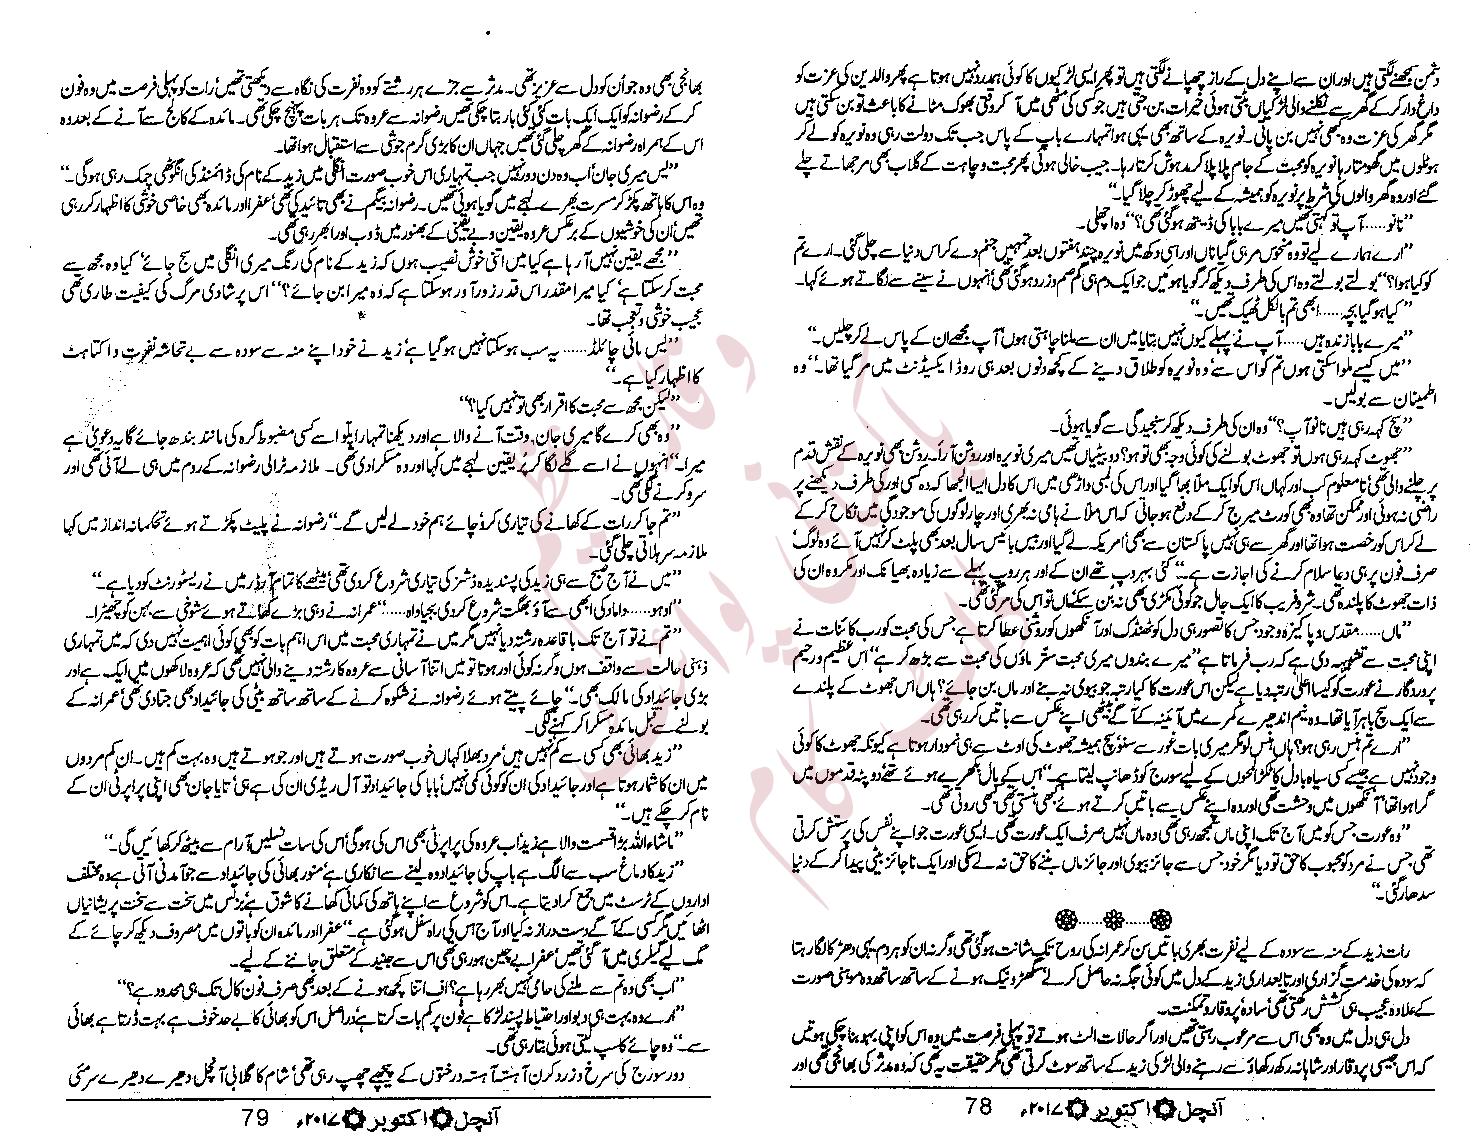 دشمن سمجھنے لگتی ہیں اور ان سے اپنے دل کے راز چھپانے لگتی ہیں تو پھر ایسی لڑکیوں کا کوئی ہمدرد نہیں ہوتا ہے پھر والدین کی عزت کو
داغ دار کر کے گھر سے نکلنے والی لڑکیاں بٹتی ہوئی خیرات بن جتی ہیں جو کسی کی مٹھی میں آ کر وقتی بھوک مٹانے کا باعث تو بن سکتی ہیں
مگر گھر کی عزت وہ کبھی نہیں بن پاتی۔ نویرہ کے ساتھ بھی یہی ہوا تمہارے باپ کے پاس جب تک دولت رہی وہ نویرہ کو لے کر
ہوٹلوں میں گھومتا رہا نویرہ کو محبت کے جام پلا پلا کر مدہوش کرتا رہا۔ جیب خالی ہوئی پھر محبت و چاہت کے گلاب بھی مرجھاتے چلے
گئے اور وہ گھر والوں کی شرط پر نویرہ کو ہمیشہ کے لیے چھوڑ کر چلا گیا۔‘‘
’’نانو..... آپ تو کہتی تھیں میرے بابا کی ڈیتھ ہو گئی تھی؟‘‘ وہ اچھلی۔
’’ارے ہمارے لیے تو وہ منحوس مر ہی گیا ناں اور اسی دکھ میں نویرہ چند ہفتوں بعد تمہیں جنم دے کر اس دنیا سے چلی گئی۔ ارے تم
کو کیا ہوا؟‘‘ بولتے بولتے وہ اس کی طرف دیکھ کر گویا ہوئیں جو ایک دم ہی گم صم و زرد ہو گئی تھی انہوں نے سینے سے لگاتے ہوئے کہا۔
’’کیا ہو گیا بچہ..... ابھی تم بالکل ٹھیک تھیں۔‘‘
’’میرے بابا زندہ ہیں..... آپ نے پہلے کیوں نہیں بتایا میں ان سے ملنا چاہتی ہوں‘ آپ مجھے ان کے پاس لے کر چلیں۔‘‘
’’میں کیسے ملوا سکتی ہوں تم کو اس سے‘ وہ نویرہ کو طلاق دینے کے کچھ دنوں بعد ہی روڈ ایکسیڈنٹ میں مر گیا تھا۔‘‘ وہ
اطمینان سے بولیں۔
’’سچ کہہ رہی ہیں نانو آپ؟‘‘ وہ ان کی طرف دیکھ کر سنجیدگی سے گویا ہوئی۔
’’جھوٹ کہہ رہی ہوں تو جھوٹ بولنے کی کوئی وجہ بھی تو ہو؟ دو بیٹیاں تھیں میری نویرہ اور روشن آرأ۔ روشن بھی نویرہ کے نقش قدم
پر چلنے والی تھی‘ نا معلوم کب اور کہاں اس کو ایک ملا بھا گیا اور اس کی لمبی داڑھی میں اس کا دل ایسا الجھا کہ وہ کسی اور کی طرف دیکھنے پر
راضی نہ ہوئی اور ممکن تھا وہ بھی کورٹ میرج کر کے دفع ہو جاتی کہ اس ملا نے ہامی نہ بھری اور چار لوگوں کی موجودگی میں نکاح کر کے
لے کر اس کو رخصت ہوا تھا اور گھر سے ہی نہیں پاکستان سے بھی‘ امریکہ لے گیا اور بیس بائیس سال بعد بھی پلٹ کر نہیں آئے وہ لوگ‘
صرف فون پر ہی دعا سلام کرنے کی اجازت ہے۔‘‘ کئی بہروپ تھے ان کے اور ہر روپ پہلے سے زیادہ بھیانک اور مکروہ ان کی
ذات جھوٹ کا پلندہ تھی۔ شر و فریب کا ایک جال جو کوئی مکڑی بھی نہ بن سکے‘ ماں تو اس کی مر گئی تھی۔
’’ماں..... مقدس و پاکیزہ وجود جس کا تصور ہی دل کو ٹھنڈک اور آنکھوں کو روشنی عطا کرتا ہے جس کی محبت کو رب کائنات نے
اپنی محبت سے تشبیہہ دی ہے کہ رب فرماتا ہے ’’میرے بندوں میری محبت ستر ماؤں کی محبت سے بڑھ کر ہے‘‘ اس عظیم و رحیم
پروردگار نے عورت کو کیسا اعلیٰ رتبہ دیا ہے لیکن اس عورت کا کیا رتبہ جو بیوی نہ بنے اور ماں بن جائے؟ ہاں اس جھوٹ کے پلندے
سے ایک سچ باہر آیا تھا۔ وہ نیم اندھیرے کمرے میں آئینہ کے آگے بیٹھی اپنے عکس سے باتیں کر رہی تھی۔
’’ارے تم ہنس رہی ہو؟ ہاں ہنس لو مگر میری بات غور سے سنو‘ سچ ہمیشہ جھوٹ کی اوٹ سے ہی نمودار ہوتا ہے کیونکہ جھوٹ کا کوئی
وجود نہیں ہے جیسے کسی سیاہ بادل کا ٹکڑا لمحوں کے لیے سورج کو ڈھانپ لیتا ہے۔‘‘ اس کے بال بکھرے ہوئے تھے دوپٹہ قدموں میں
گرا ہوا تھا‘ آنکھوں میں وحشت تھی اور وہ اپنے عکس سے باتیں کرتے ہوئے کبھی ہنستی تھی کبھی روتی تھی۔
’’وہ عورت جس کو میں آج تک اپنی ماں سمجھ رہی تھی وہ ماں نہیں صرف ایک عورت تھی۔ ایسی عورت جو اپنے نفس کی پرستش کرتی
تھی جس نے مرد کو محبوب کا حق تو دیا مگر خود جس سے جائز بیوی اور جائز ماں بننے کا حق نہ لے سکی اور ایک ناجائز بیٹی پیدا کر کے دنیا
سدھار گئی۔‘‘
رات زید کے منہ سے سودہ کے لیے نفرت بھری باتیں سن کر عمرانہ کی روح تک شانت ہو گئی تھی وگرنہ ان کو ہر دم یہی دھڑکا لگا رہتا
کہ سودہ کی خدمت گزاری اور تابعداری زید کے دل میں کوئی جگہ نہ حاصل کر لے‘ سگھڑ و نیک ہونے کے ساتھ ساتھ وہ موہنی صورت
کے علاوہ عجیب ہی کشش رکھتی تھی‘ سادہ‘ پروقار و تمکنت۔
دل ہی دل میں وہ بھی اس سے مرعوب رہتی تھیں اور اگر حالات الٹ ہوتے تو پہلی فرصت میں وہ اس کو اپنی بہو بنا چکی ہوتیں
کہ اس جیسی پروقار اور شاہانہ رکھ رکھاؤ سے رہنے والی لڑکی زید کے ساتھ سوٹ کرتی تھی مگر حقیقت یہ تھی کہ وہ مدثر کی بھانجی تھی اور
آنچل اکتوبر ۲۰۱۷ء 78
بھانجی بھی وہ جو ان کو دل سے عزیز تھی۔ مدثر سے جڑے ہر رشتے کو وہ نفرت کی نگاہ سے دیکھتی تھیں‘ رات کو پہلی فرصت میں وہ فون
کر کے رضوانہ کو ایک ایک بات کئی کئی بار بتا چکی تھیں رضوانہ سے عروہ تک ہر بات پہنچ چکی تھی۔ مائدہ کے کالج سے آنے کے بعد وہ
اس کے ہمراہ رضوانہ کے گھر چلی گئی تھیں جہاں ان کا بڑی گرم جوشی سے استقبال ہوا تھا۔
’’بس میری جان اب وہ دن دور نہیں جب تمہاری اس خوب صورت انگلی میں زید کے نام کی ڈائمنڈ کی انگوٹھی چمک رہی ہو گی۔‘‘
وہ اس کا ہاتھ پکڑ کر مسرت بھرے لہجے میں گویا ہوئی تھیں۔ رضوانہ بیگم نے بھی تائید کی تھی‘ عفرا اور مائدہ بھی خاصی خوشی کا اظہار کر رہی
تھیں‘ ان کی خوشیوں کے برعکس عروہ یقین و بے یقینی کے بھنور میں ڈوب اور ابھر رہی تھی۔
’’مجھے یقین نہیں آ رہا ہے کیا میں اتنی خوش نصیب ہوں کہ زید کے نام کی رنگ میری انگلی میں سج جائے‘ کیا وہ مجھ سے
محبت کر سکتا ہے‘ کیا میرا مقدر اس قدر زور آور ہو سکتا ہے کہ وہ میرا بن جائے؟‘‘ اس پر شادی مرگ کی کیفیت طاری تھی
عجیب خوشی و تعجب تھا۔
’’یس مائی چائلڈ..... یہ سب ہو سکتا نہیں ہو گیا ہے‘ زید نے خود اپنے منہ سے سودہ سے بے تحاشہ نفرت و اکتاہٹ
کا اظہار کیا ہے۔‘‘
’’لیکن مجھ سے محبت کا اقرار بھی تو نہیں کیا؟‘‘
’’وہ بھی کرے گا میری جان‘ وقت آنے والا ہے اور دیکھنا تمہارا پلو اسے کسی مضبوط گرہ کی مانند بندھ جائے گا یہ دعویٰ ہے
میرا۔‘‘ انہوں نے اسے گلے لگا کر پر یقین لہجے میں کہا اور وہ مسکرا دی تھی۔ ملازمہ ٹرالی رضوانہ کے روم میں ہی لے آئی تھی اور
سرو کرنے لگی تھی۔
’’تم جا کر رات کے کھانے کی تیاری کرو‘ چائے ہم خود لے لیں گے۔‘‘ رضوانہ نے پلیٹ پکڑتے ہوئے تحکمانہ انداز میں کہا
ملازمہ سر ہلاتی چلی گئی۔
’’میں نے آج صبح سے ہی زید کی پسندیدہ ڈشز کی تیاری شروع کر دی تھی‘ میٹھے کا تمام آرڈر میں نے ریسٹورنٹ کو دیا ہے۔‘‘
’’اوہو..... داماد کی ابھی سے آؤ بھگت شروع کر دی بجیا واہ.....‘‘ عمرانہ نے دہی بڑے کھاتے ہوئے شوخی سے بہن کو چھیڑا۔
’’تم نے تو آج تک باقاعدہ رشتہ دیا نہیں مگر میں نے تمہاری محبت میں اس اہم بات کو بھی کوئی اہمیت نہیں دی کہ میں تمہاری
ذہنی حالت سے واقف ہوں وگرنہ کوئی اور ہوتا تو میں اتنا آسانی سے عروہ کا رشتہ دینے والی نہیں تھی کہ عروہ لاکھوں میں ایک ہے اور
بڑی جائیداد کی مالک بھی۔‘‘ چائے پیتے ہوئے رضوانہ نے شکوہ کرنے کے ساتھ ساتھ بیٹی کی جائیداد بھی جتا دی تھی عمرانہ کے
بولنے سے قبل مائدہ مسکرا کر کہنے لگی۔
’’زید بھائی بھی کسی سے کم نہیں ہیں‘ مرد بھلا کہاں خوب صورت ہوتے ہیں اور جو ہوتے ہیں وہ بہت کم ہیں۔ ان کم مردوں
میں ان کا شمار ہوتا ہے اور جائیداد کی ان کو کوئی کمی نہیں‘ بابا کی جائیداد تو آل ریڈی ان کی ہے ہی‘ تایا جان بھی اپنی پراپرٹی ان کے
نام کر چکے ہیں۔‘‘
’’ماشاء اللہ بڑا قسمت والا ہے زید‘ اب عروہ کی پراپرٹی بھی اس کی ہو گی‘ اس کی سات نسلیں آرام سے بیٹھ کر کھائیں گی۔‘‘
’’زید کا دماغ سب سے الگ ہے باپ کی جائیداد وہ لینے سے انکاری ہے‘ منور بھائی کی جائیداد سے جو آمدنی آتی ہے وہ مختلف
اداروں کے ٹرسٹ میں جمع کرا دیتا ہے۔ اس کو شروع سے اپنے ہاتھ کی کمائی کھانے کا شوق ہے‘ بزنس میں سخت سے سخت پریشانیاں
اٹھائیں مگر کسی کے آگے دست دراز نہ کیا اور آج اس کی راہ سہل ہو گئی ہے۔‘‘ عفرا اور مائدہ ان کو باتوں میں مصروف دیکھ کر چائے کے
مگ لیے گیلری میں آ گئی تھیں‘ عفرا بے چین ہو رہی تھی اس سے جنید کے متعلق جاننے کے لیے۔
’’اب بھی وہ تم سے ملنے کی حامی نہیں بھر رہا ہے؟ اف اتنا کچھ ہونے کے بعد بھی صرف فون کال تک ہی محدود ہے؟‘‘
’’ارے وہ بہت ہی دبو اور احتیاط پسند لڑکا ہے‘ فون پر کم بات کرتا ہے‘ دراصل اس کو بھائی کا بے حد خوف ہے بہت ڈرتا ہے بھائی
سے۔‘‘ وہ چائے کا سپ لیتی ہوئی بتا رہی تھی۔
دور سورج کی سرخ و زرد کرن آہستہ آہستہ درختوں کے پیچھے چھپ رہی تھی‘ شام کا گلابی آنچل دھیرے دھیرے سرمئی
آنچل اکتوبر ۲۰۱۷ء 79